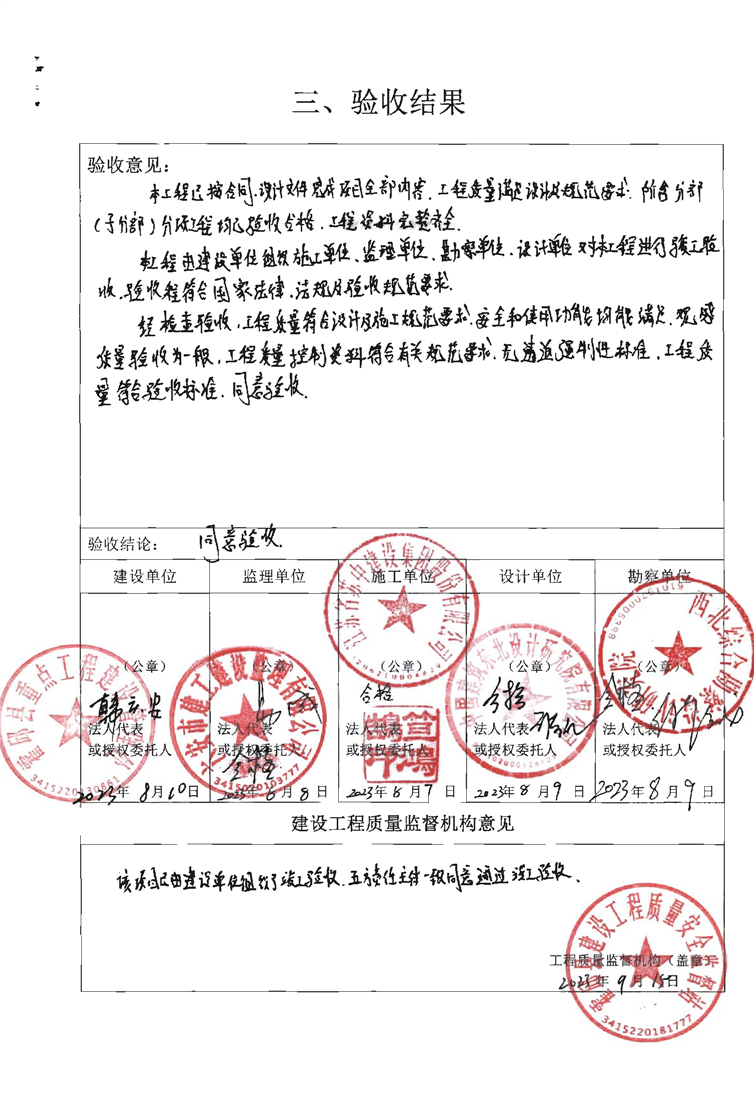 三、验收结果
验收意见：
本工程已按合同、设计文件完成项目全部内容，工程质量满足设计及规范要求，所含分部
（子分部）分项工程均已验收合格，工程资料完整齐全。
本工程由建设单位组织施工单位、监理单位、勘察单位、设计单位对本工程进行竣工验
收，验收程序符合国家法律、法规及验收规范要求。
经检查验收，工程质量符合设计及施工规范要求，安全和使用功能均能满足，观感
质量验收为一般，工程质量控制资料符合有关规范要求，无违返强制性标准，工程质
量符合验收标准，同意验收。
验收结论： 同意验收
建设单位 监理单位 施工单位 设计单位 勘察单位
江苏省苏中建设集团股份有限公司
（公章） （公章） （公章） （公章） （公章）
霍邱县重点工程建设
六安市建工建设监理有限公司
中国建筑东北设计研究院有限公司
西北综合勘察
合格 合格 合格
法人代表 法人代表 法人代表 法人代表
或授权委托人 或授权委托人 或授权委托人 或授权委托人
合格
3415220130861
3415020103777
2023年8月10日 2023年8月8日 2023年8月7日 2023年8月9日 2023年8月9日
建设工程质量监督机构意见
该项目已由建设单位组织了竣工验收，五方责任主体一致同意通过竣工验收。
霍邱县建设工程质量安全监督站
工程质量监督机构（盖章）
2023年9月15日
3415220181777